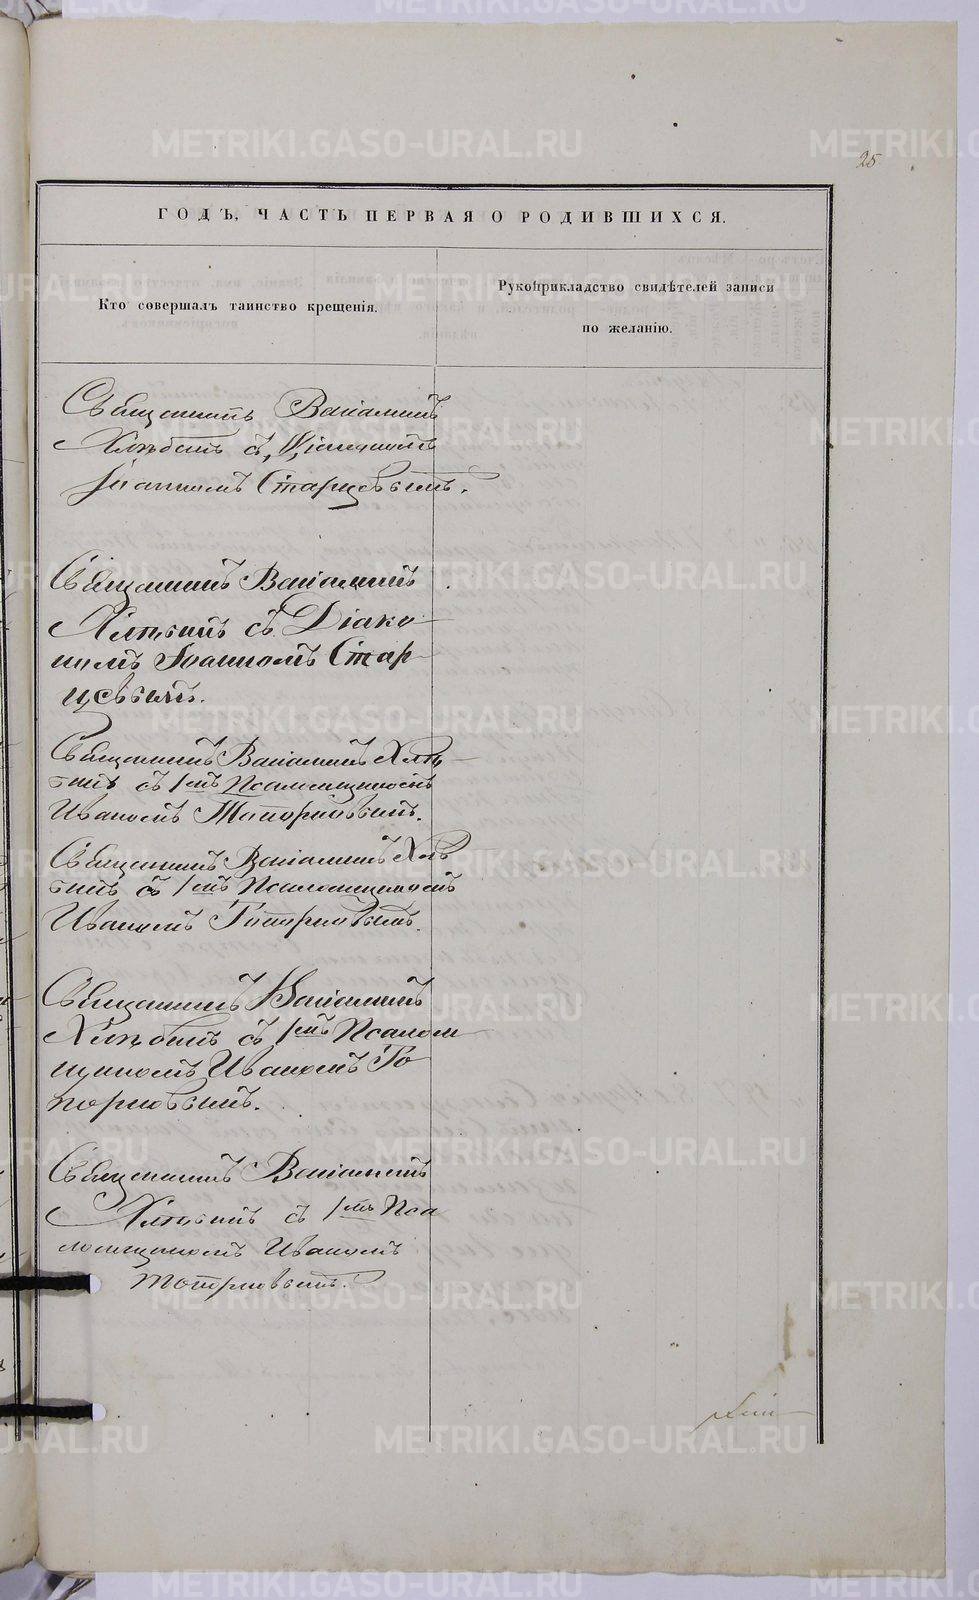 25
ГОДЪ, ЧАСТЬ ПЕРВАЯ О РОДИВШИХСЯ.
Кто совершалъ таинство крещенія.
Рукоприкладство свидѣтелей записи
по желанію.
Священникъ Веніаминъ
Хлѣбинъ съ Діакономъ
Іоанномъ Старцевымъ.
Священникъ Веніаминъ
Хлѣбинъ съ Діако
номъ Іоанномъ Стар
цевымъ.
Священникъ Веніаминъ Хлѣ
бинъ съ 1мъ Псаломщикомъ
Иваномъ Топорковымъ.
Священникъ Веніаминъ Хлѣ
бинъ съ 1мъ Псаломщикомъ
Иваномъ Топорковымъ.
Священникъ Веніаминъ
Хлѣбинъ съ 1мъ Псалом
щикомъ Иваномъ То
порковымъ.
Священникъ Веніаминъ
Хлѣбинъ съ 1мъ Пса
ломщикомъ Иваномъ
Топорковымъ.
METRIKI.GASO-URAL.RU